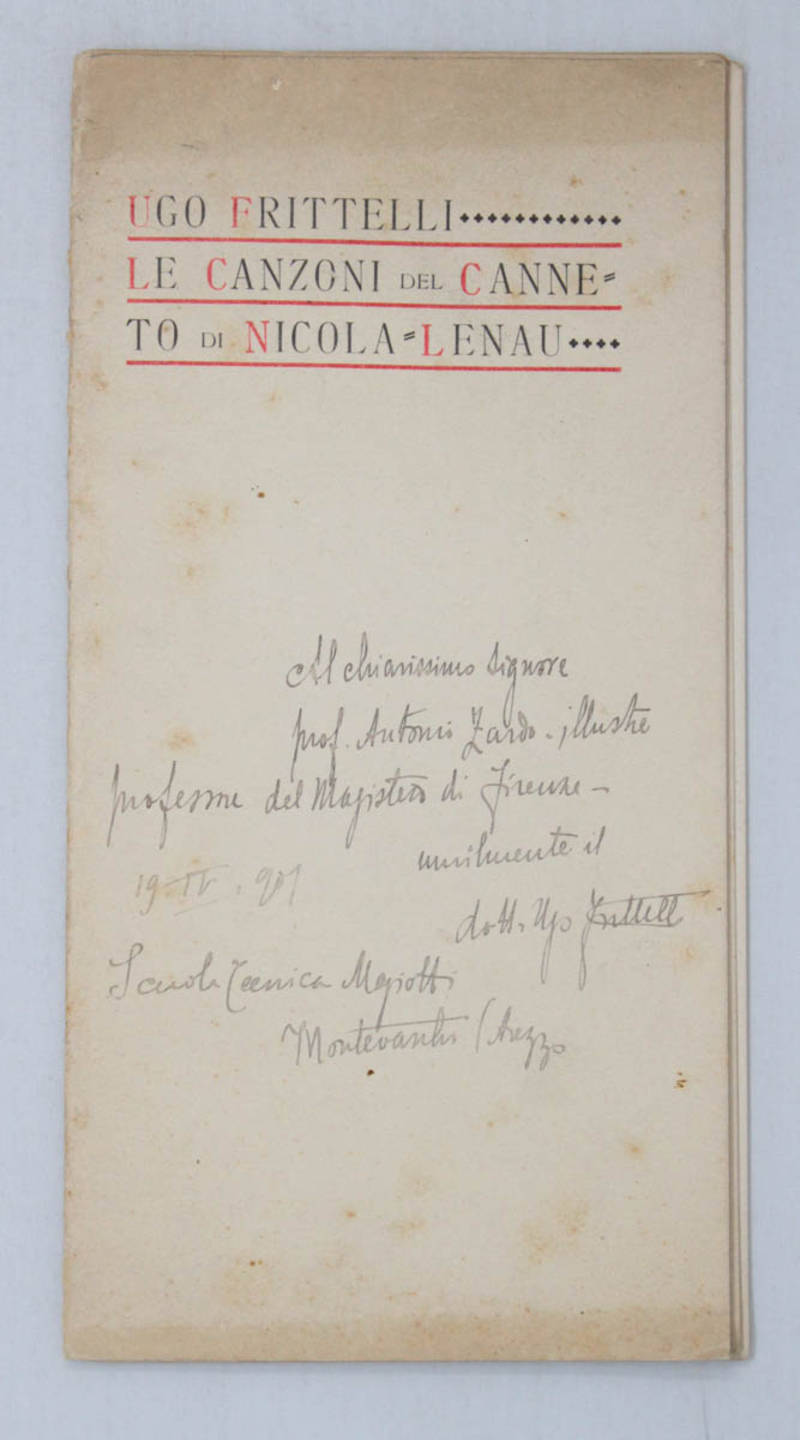 UGO FRITTELLI
LE CANZONI DEL CANNE=
TO DI NICOLA=LENAU
Al chiarissimo Signore
prof. Antonio Zardo - illustre
professore del Magistero di Firenze -
umilmente il
19-IV-907
dott. Ugo Frittelli
Scuola Tecnica Magiotti
Montevarchi (Arezzo